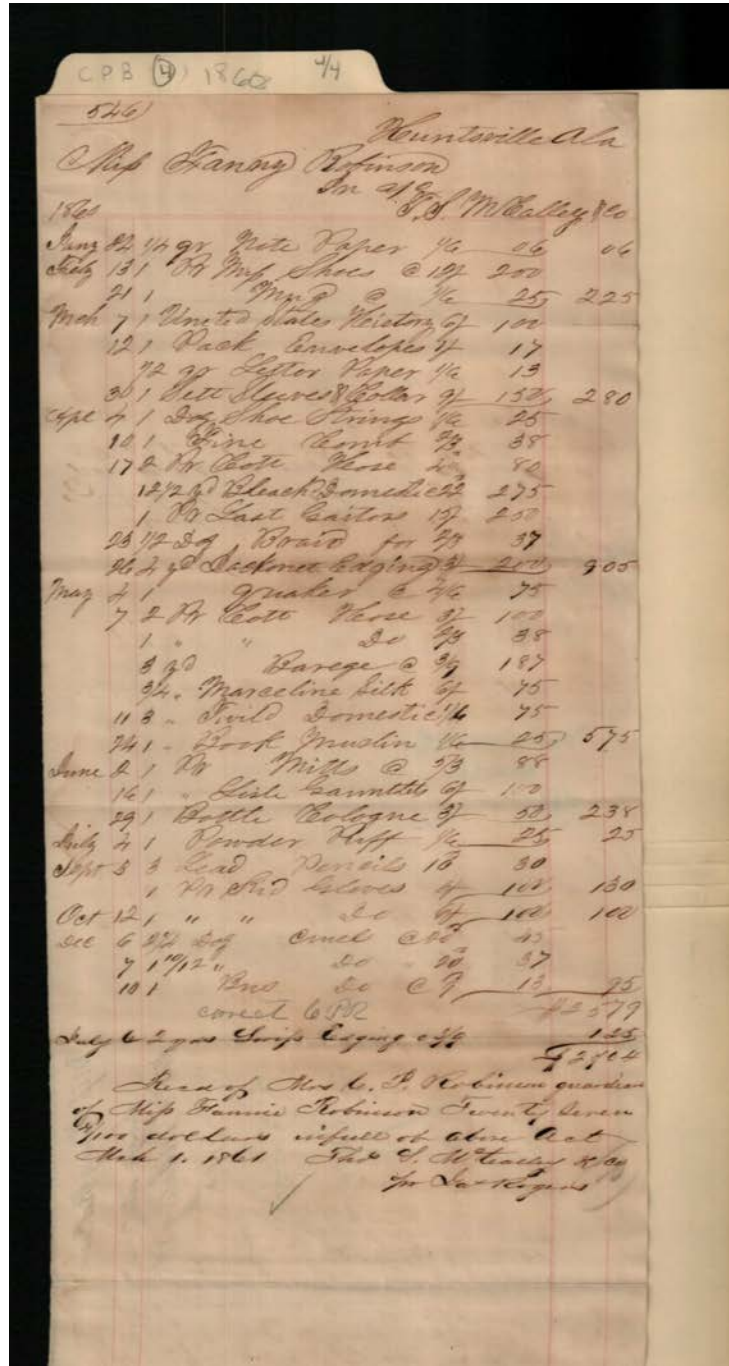 CPB (4) 1860 4/4
546)
Huntsville Ala
Miss Fanny Robinson
In a/c
1860 T. S. McCalley & Co
Jany 22 1/4 qr Note Paper 1/6 06 06
Feby 13 1 Pr Miss Shoes @ 12/ 200
21 1 @ 1/6 25 225
Mch 7 1 United States History 6/ 100
12 1 Pack Envelopes 1/ 17
1/2 qr Letter Paper 1/6 13
30 1 Sett Sleeves & Collar 9/ 150 280
Apl 4 1 Doz Shoe Strings 1/6 25
10 1 Fine Comb 2/3 38
17 2 Pr Cott Hose 80
12 1/2 yd Bleach Domestic 22 275
1 Pr Last Gaitors 15/ 250
23 1/2 Doz Braid for 2/3 37
26 2 yd Jackonet Edging 200 905
May 4 1 quaker @ 4/6 75
7 2 Pr Cott Hose 3/ 100
1 " " Do 2/3 38
3 yd Barege @ 3/9 187
3/4 " Marceline Silk 6/ 75
11 3 " Twild Domestic 1/6 75
24 1 " Book Muslin 1/6 25 575
June 2 1 Pr Mitts @ 5/3 88
16 1 " Lisle Gauntlets 6/ 100
29 1 Bottle Cologne 3/ 50 238
July 4 1 Powder Puff 1/6 25 25
Sept 5 3 Lead Pencils 10 30
1 Pr Kid Gloves 100 130
Oct 12 1 " " Do 6/ 100 100
Dec 6 Doz @
7 1 10/12 " Do 20 37
10 1 Do @ 9 13 95
correct CPR $2579
July 6 2 yds Swiss Edging 125
$2704
Recd of Mrs C. P. Robinson guardian
of Miss Fannie Robinson Twenty Seven
4/100 dollars in full of above Act
Mch 1. 1861 Thos S. McCalley & Co
pr Jas Rogers